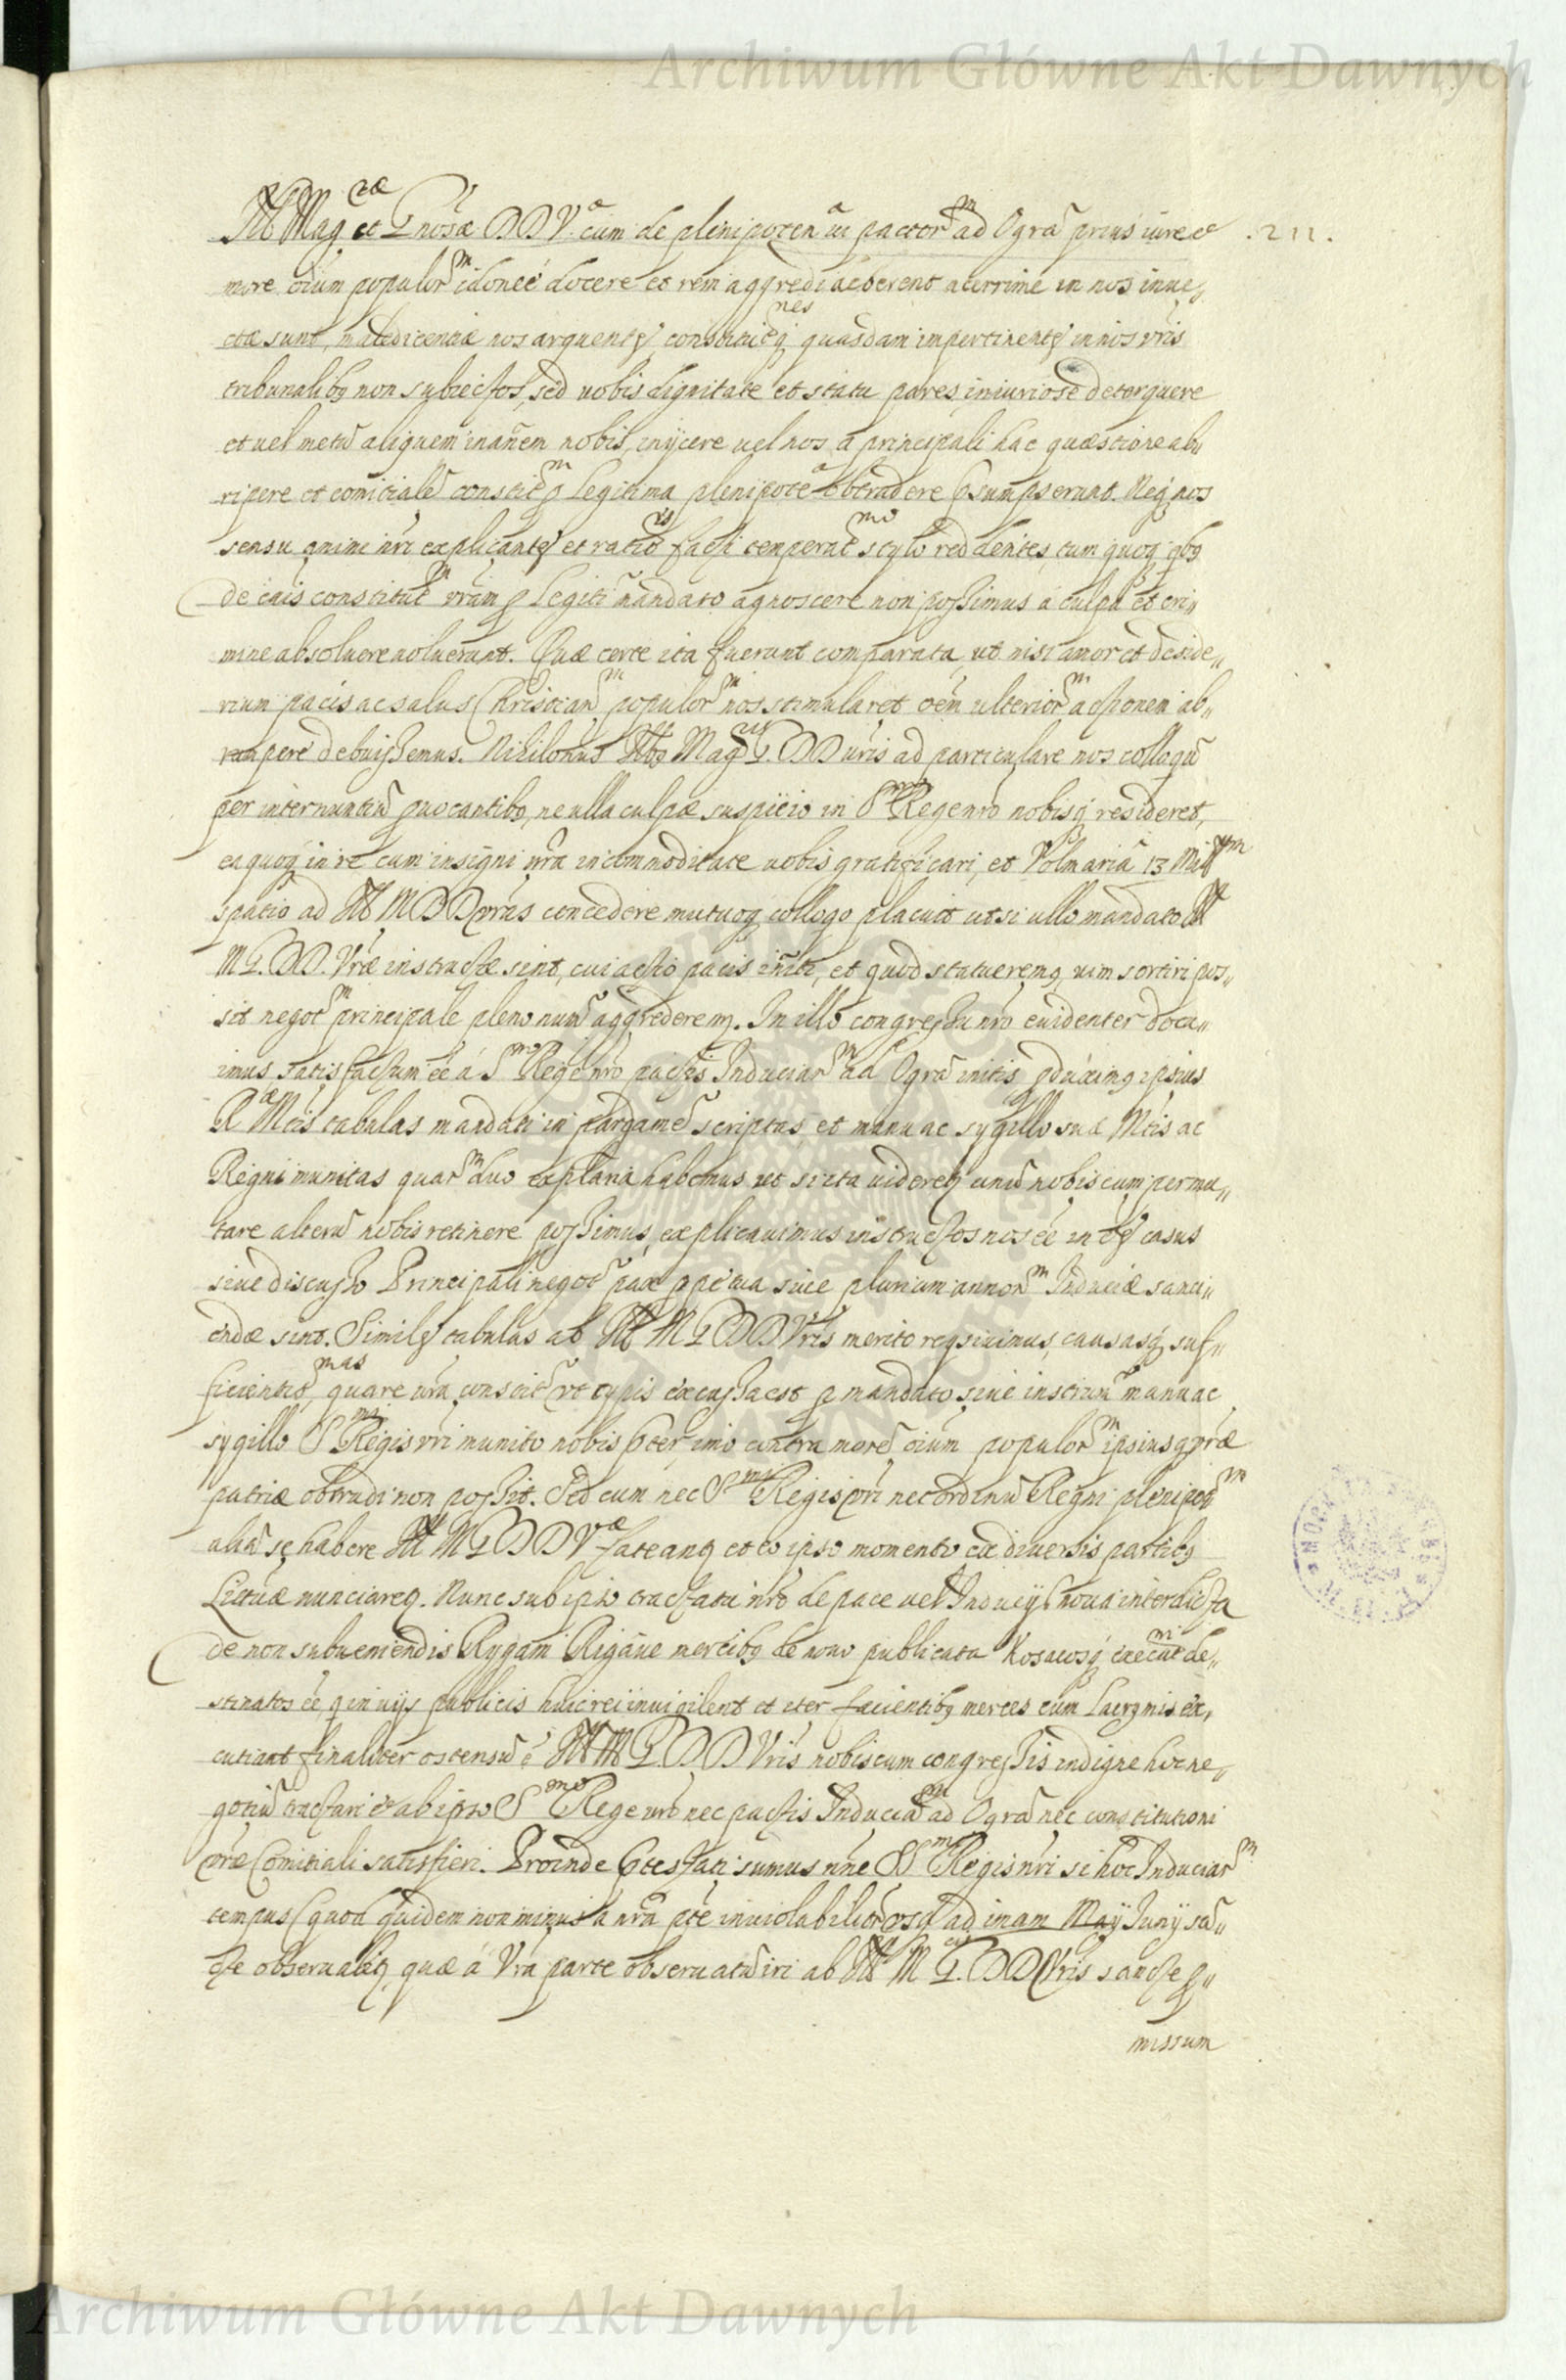 Archiwum Główne Akt Dawnych
Ill Mag et Gnosæ DD Vᵃ cum de plenipotenᵃ ac pactorᵐ ad Ogrā prius iure et .211.
more oium populorᵐ idonee docere et rem aggredi deberent acerrime in nos inue„
ctæ sunt, maledicentiæ nos arguentes, constitutᵑᵉˢ quasdam impertinentes in nos vris
tribunalibq non subiectos, sed uobis dignitate et statu pares iniuriose detorquere
et uel metū aliquem inanem nobis inijcere uel nos a principali hac quæstione ab„
ripere et comitialē constitᵐ p legitima plenipotēᵃ obtrudere psumpserunt. Neq nos
sensū animi nri explicantes et ratioᵉˢ facti temperatᵐᵒ stylo reddentes, cum quoq qbq
de cāis constitutᵐ vram p legiti mandato agnoscere non possimus a culpa et cri„
mine absoluere uoluerunt. Quæ certe ita fuerunt comparata, ut nisi amor et deside„
rium pacis ac salus Christianᵐ populorᵐ nos stimularet oēm ulteriorᵐ actionem ab„
rumpere debuissemus. Nihilominus Illbq Mag G. DD uris ad particulare nos colloqū
per internuntiū puocantibq, ne ulla culpæ suspicio in Sᵐᵒ Rege nro nobisq resideret,
ea quoq in re cum insigni nra incommoditate uobis gratificari, et Volmariā 13 Millᵐ
spatio ad Ill M DD vras concedere mutuoq colloqo placuit ut si ullo mandato Ill
M G. DD. Vræ instructæ sint, cui actio pacis initi, et quod statueremq, uim sortiri pos„
sit negotᵐ principale pleno nunc aggrederemq. In illo congressu nro euidenter docu„
imus satisfactum ēē a Sᵐᵒ Rege nro pactis Induciarᵐ ad Ogrā initis pduximq ipsius
Rᵃ Mtis tabulas mandati in pargamē scriptas et manu ac sygillo suæ Mtis ac
Regni munitas quarᵐ duo explaria habemus ut si ita uideretq unū nobiscum permu„
tare alterū nobis retinere possimus, explicauimus instructos nos ēē in oēs casus
siue discusso Principali negotᵒ pax ppetua siue plurium annorᵐ Induciæ sanci„
endæ sint. Similes tabulas ab Ill M G DD Vris merito reqsiuimus, causasq suf„
ficientisᵐᵃˢ, quare vra constitᵒ ut typis excussa est p mandato siue instrum manu ac
sygillo Sᵐⁱ Regis vri munito nobis pter, imo contra morē oium populorᵐ ipsiusq vræ
patriæ obtrudi non possit. Sed cum nec Sᵐⁱ Regis vri nec ordinū Regni plenipotᵐ
aliā se habere Ill M G DD Vᵃ fateantq et eo ipso momento ex diuersis partibq
Lituæ nunciaretq. Nunc sub ipso tractatu nro de pace uel Inducijs noua interdicta
de non subueniendis Rygam Rigāue mercibq de nouo publicata Kosacosq executᵐⁱ de„
stinatos ēē, q in uijs publicis huic rei inuigilent et iter facientibq merces cum lacrymis ex„
cutiant finaliter ostensū ē Ill M G. DD Vris nobiscum congressis indigne hoc ne„
gotiū tractari et ab ipso Sᵐᵒ Rege uro nec pactis Induciaᵐ ad Ogrā nec constitutioni
vræ Comitiali satisfieri. Proinde ptestati sumus nne Sᵐⁱ Regis nri si hoc Induciarᵐ
tempus (quod quidem non minus a nra pte inuiolabiliter usq ad imam Maij Junij sā„
cte obseruabitq, quæ a Vra parte obseruatū iri ab Ill M G. DD Vris sancte p„
missum
Archiwum Główne Akt Dawnych